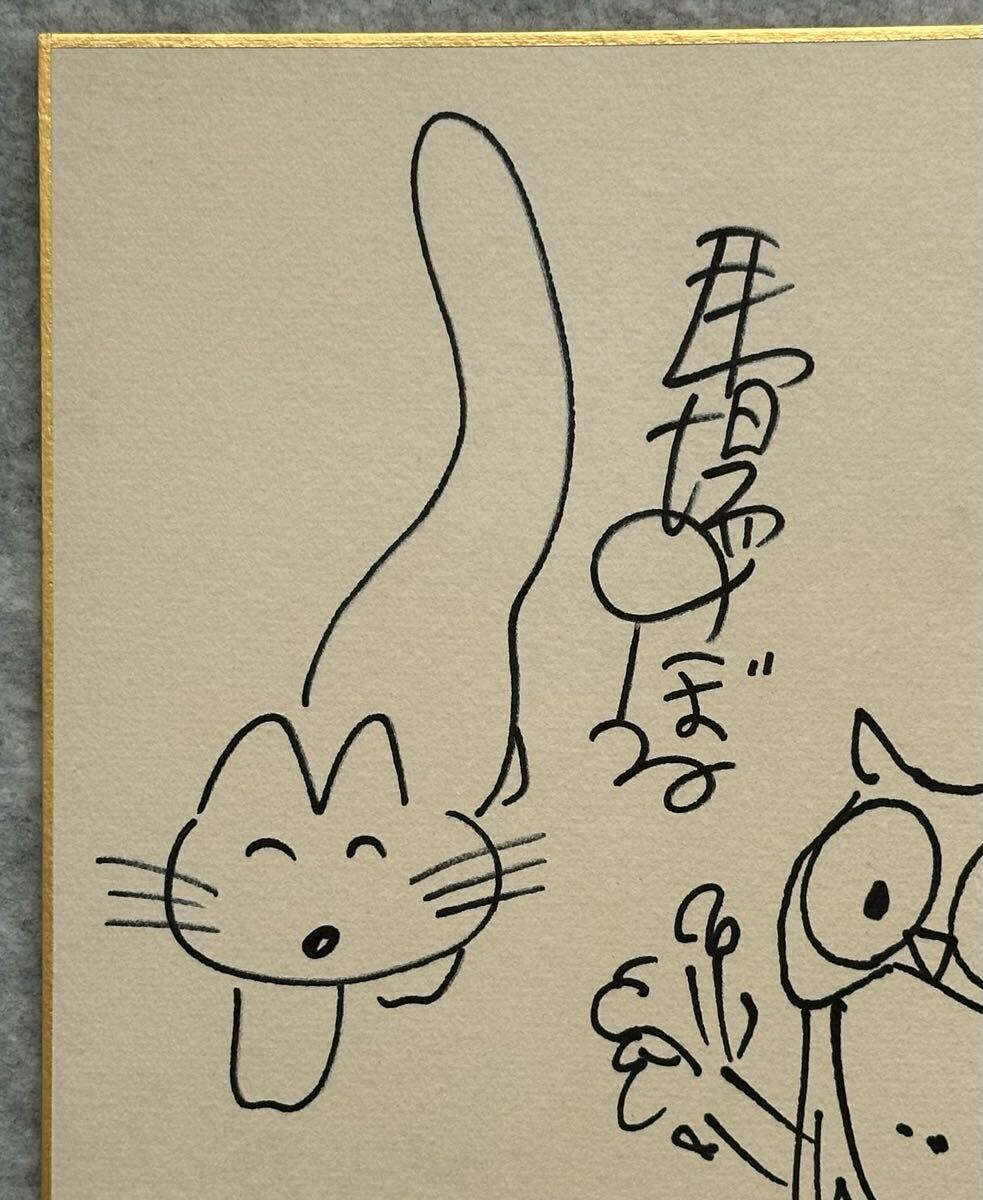 馬場のぼる